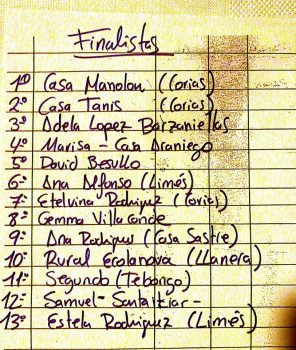 Finalistas
1º Casa Manolon (Corias)
2º Casa Tanis (Corias)
3º Adela Lopez Barzaniellas
4º Marisa - Casa Araniego
5º David Besullo
6º Ana Alfonso (Limés)
7º Etelvina Rodriguez (Corias)
8º Gemma Villa conde
9º Ana Rodriguez (Casa Sastre)
10º Rural (Llanera)
11º Segundo (Tebongo)
12º Samuel -
13º Estela Rodriguez (Limés)